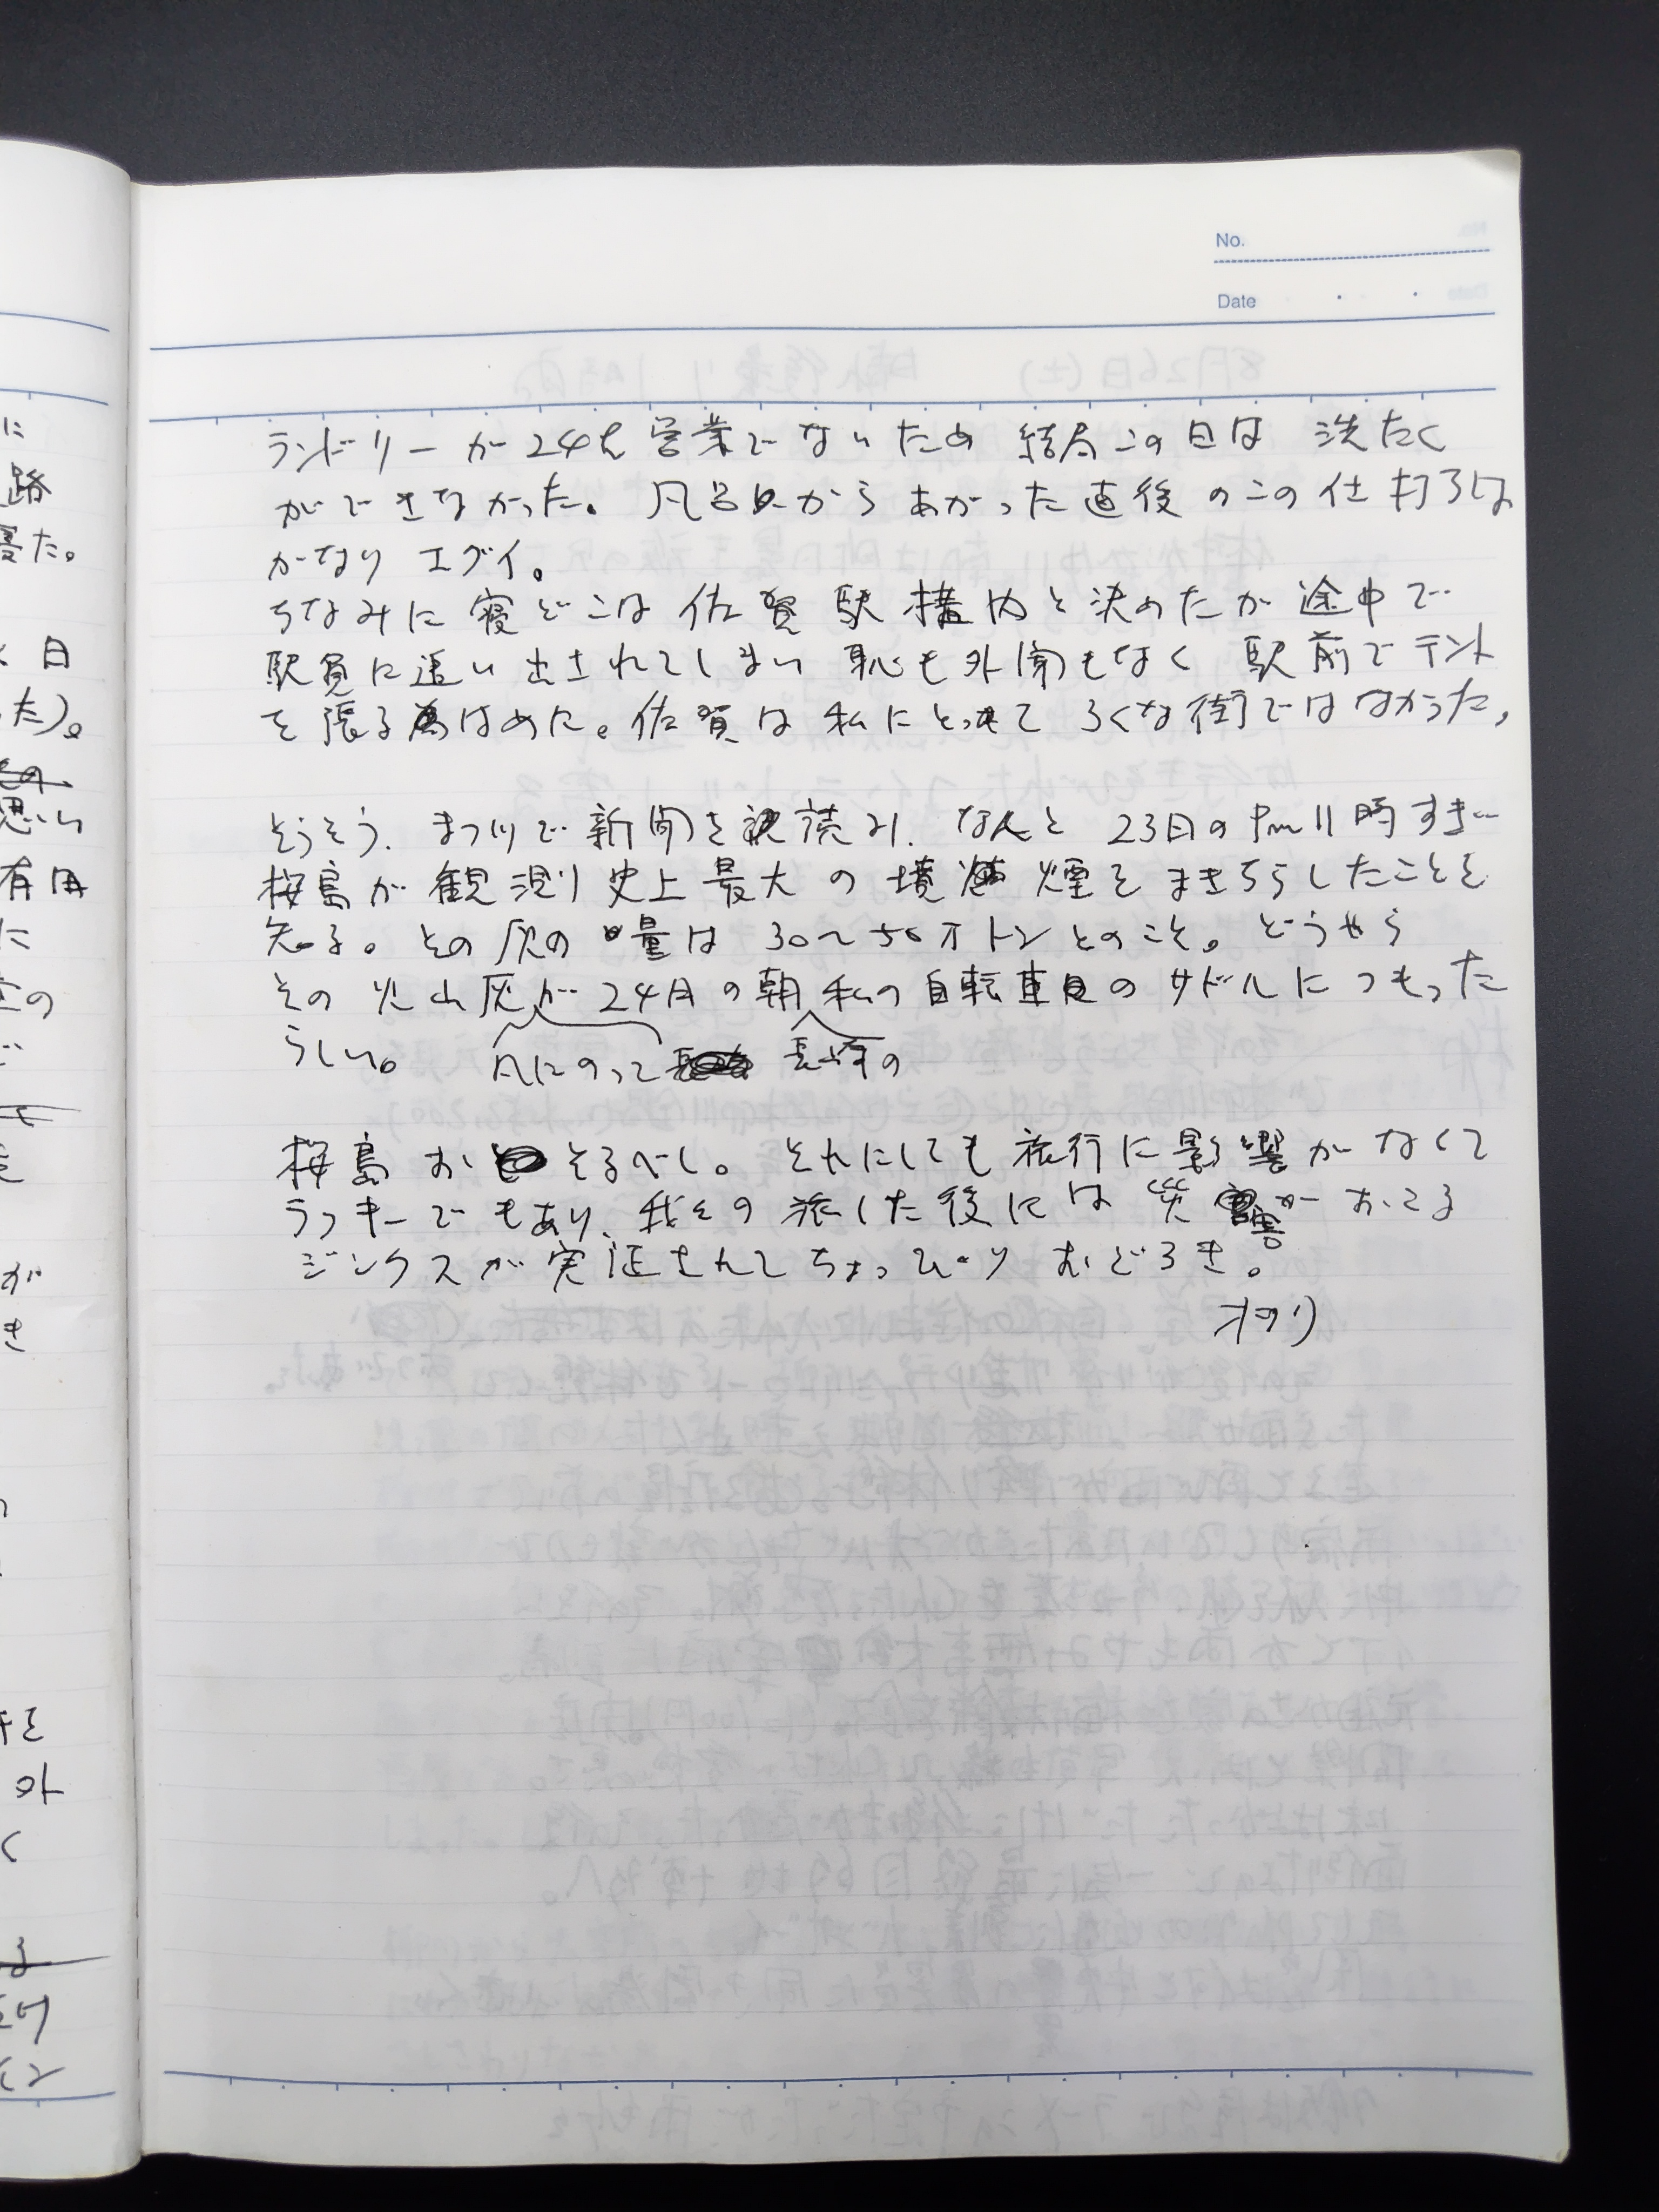 No.
Date
ランドリーが24h営業でないため 結局この日は 洗たく
ができなかった。風呂からあがった直後のこの仕打ちは
かなり エグイ。
ちなみに 寝どこは 佐賀駅構内と決めたが 途中で
駅員に追い出されてしまい 恥も外聞もなく 駅前でテント
を張るはめに。佐賀は 私にとって ろくな街ではなかった,
そうそう、まつりで新聞を読み、なんと 23日のPm11時すぎ
桜島が観測史上最大の 噴煙をまきちらしたことを
知る。その灰の量は 30〜50万トンとのこと。どうやら
その 火山灰が 24日の朝 私の自転車のサドルにつもった
らしい。 風にのって 長崎の
桜島 おそるべし。それにしても 旅行に影響がなくて
ラッキーでもあり、我々の 旅した後には 災害がおこる
ジンクスが実証されてちょっぴり おどろき。
オワリ
に
路
寝た。
日
った)。
思い
有用
に
の
が
き
を
外
く
る